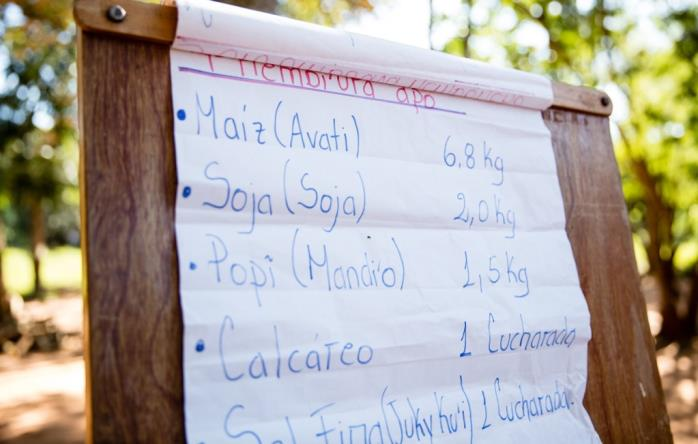 apo
• Maíz (Avati) 6.8 kg
• Soja (Soja) 2,0 kg
• Popi (Mandi'o) 1,5 kg
• Calcáreo 1 Cucharada
Sal Fina (Juky ku'i) 1 Cucharada.